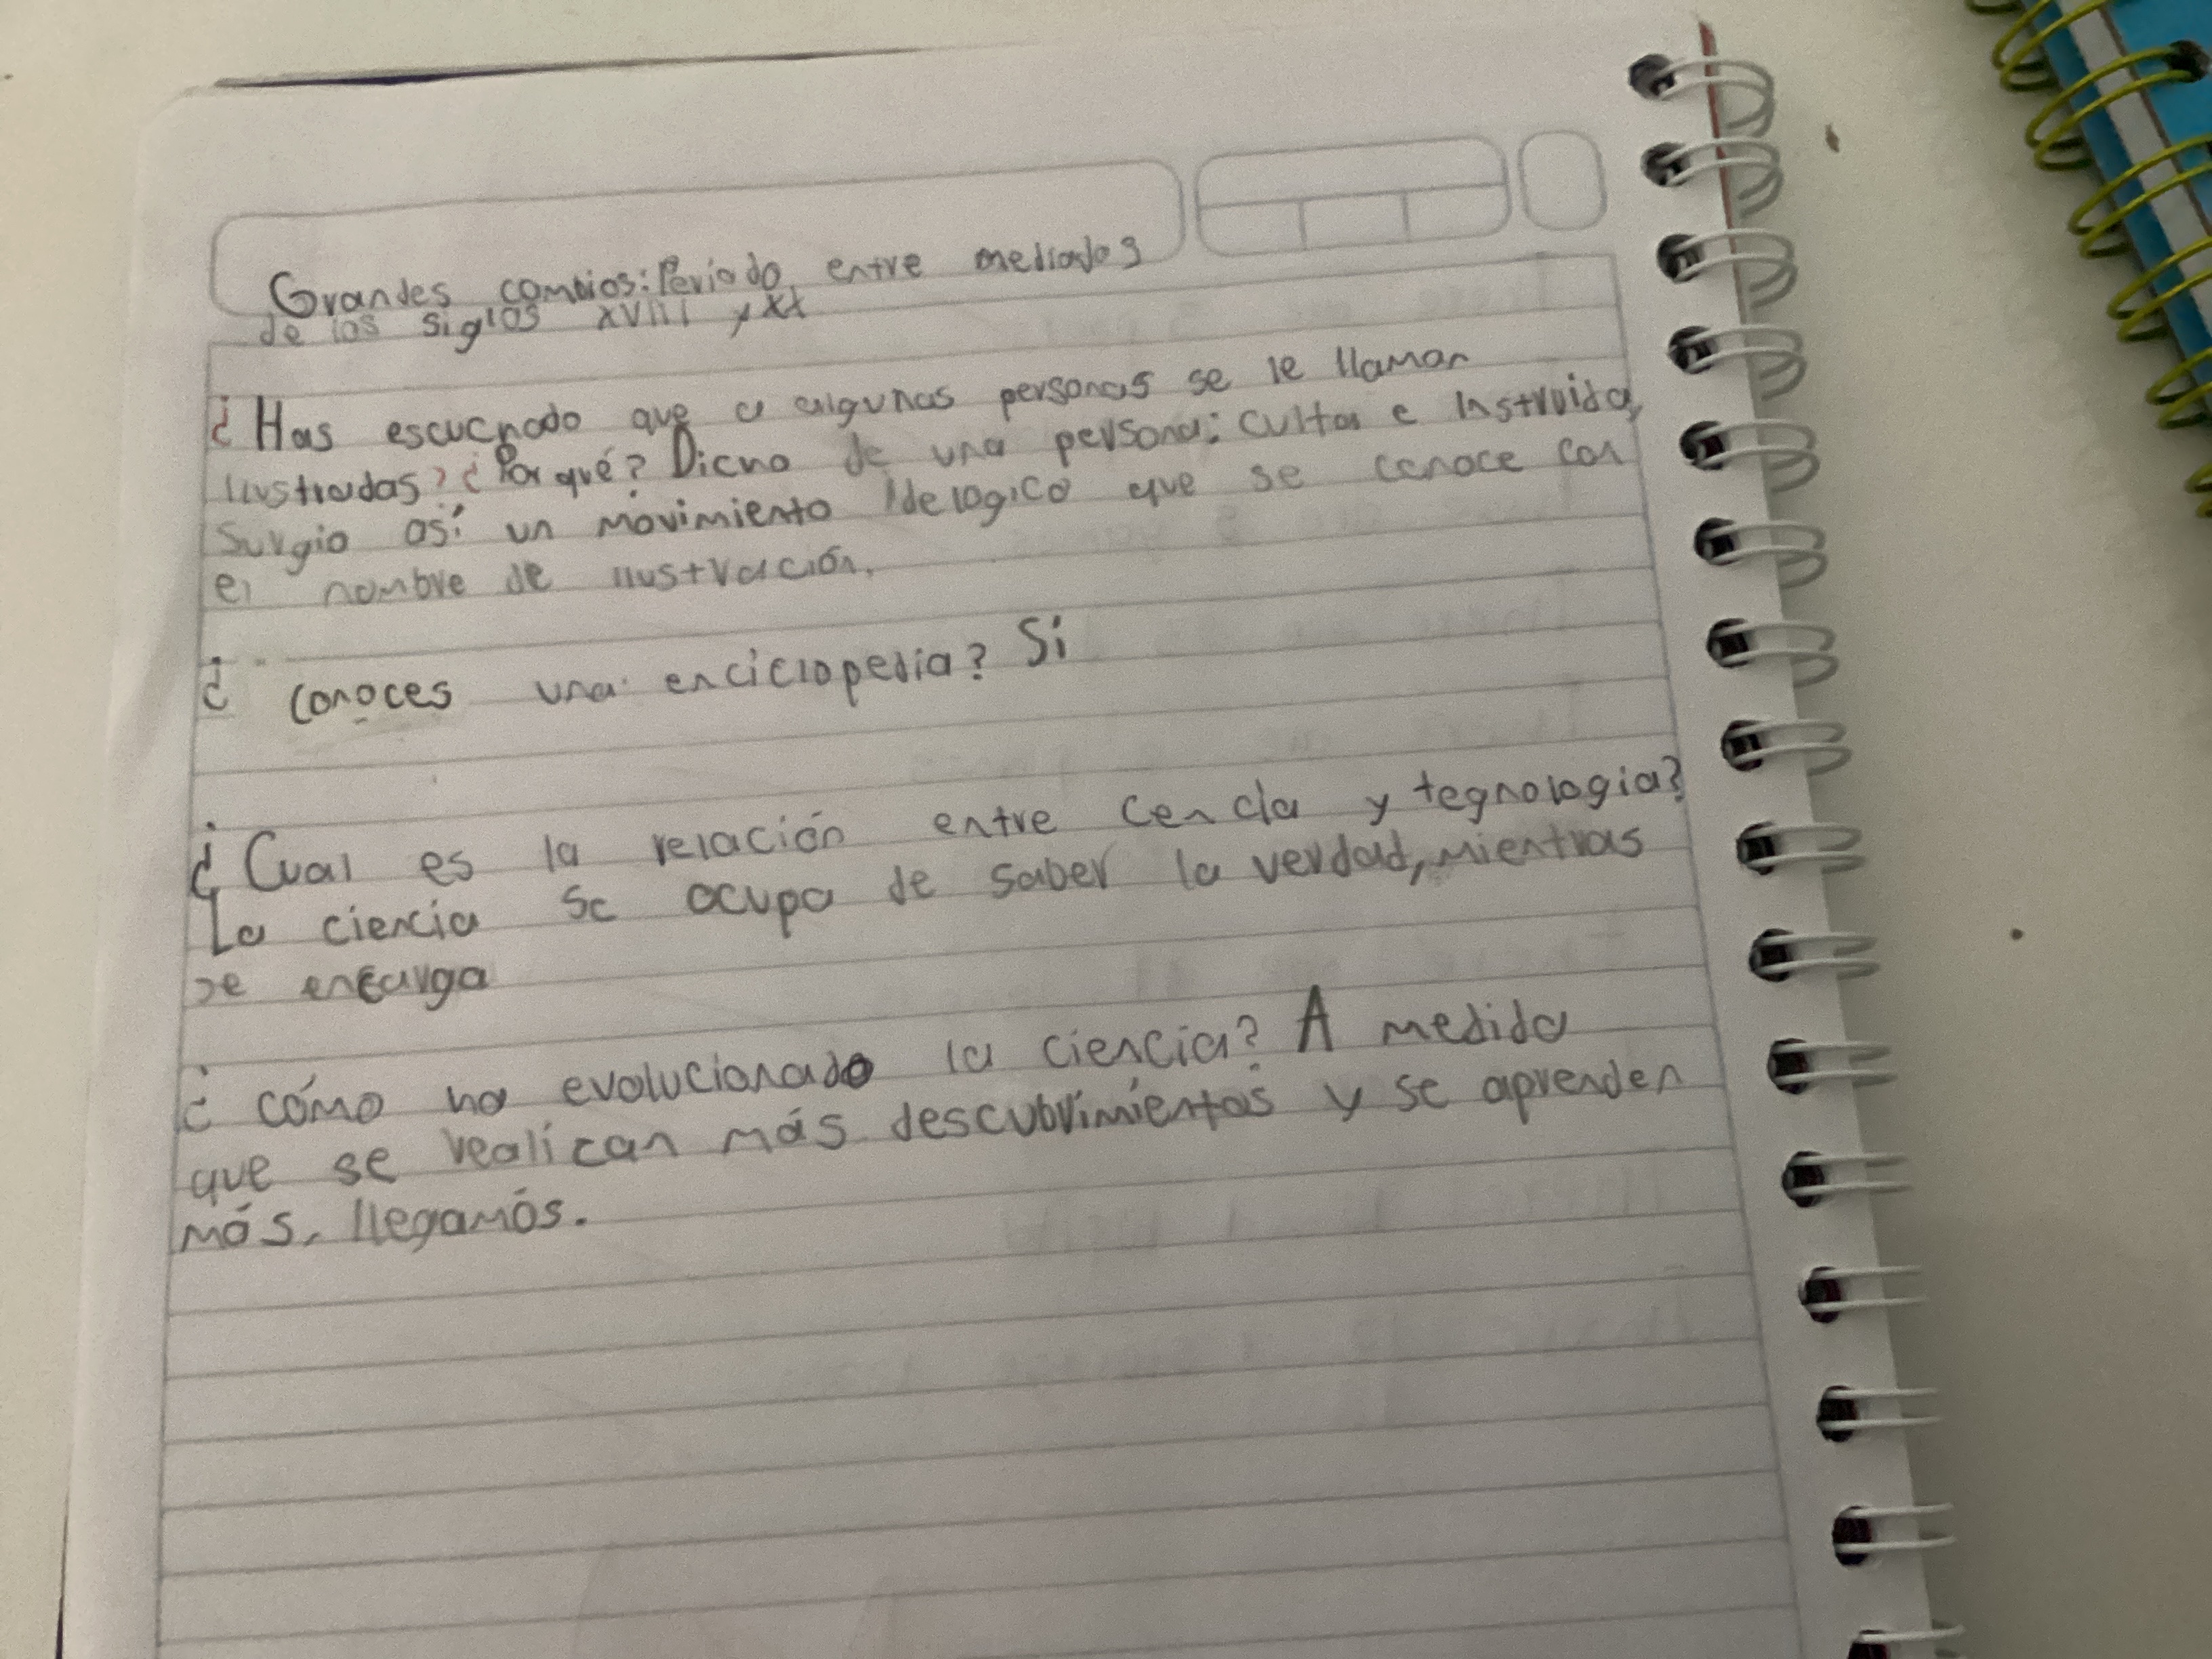 Grandes cambios: Periodo entre mediados
de los siglos XVIII y XX
¿Has escuchado que a algunas personas se le llaman
ilustradas? ¿Por qué? Dicho de una persona: culta e instruida,
Surgio así un movimiento idelogico que se conoce con
el nombre de ilustración.
¿conoces una enciclopedia? Si
¿Cual es la relación entre cencia y tegnologia?
La ciencia se ocupa de saber la verdad, mientras
se encarga
¿cómo ha evolucionado la ciencia? A medida
que se realican más descubrimientos y se aprenden
más, llegamós.